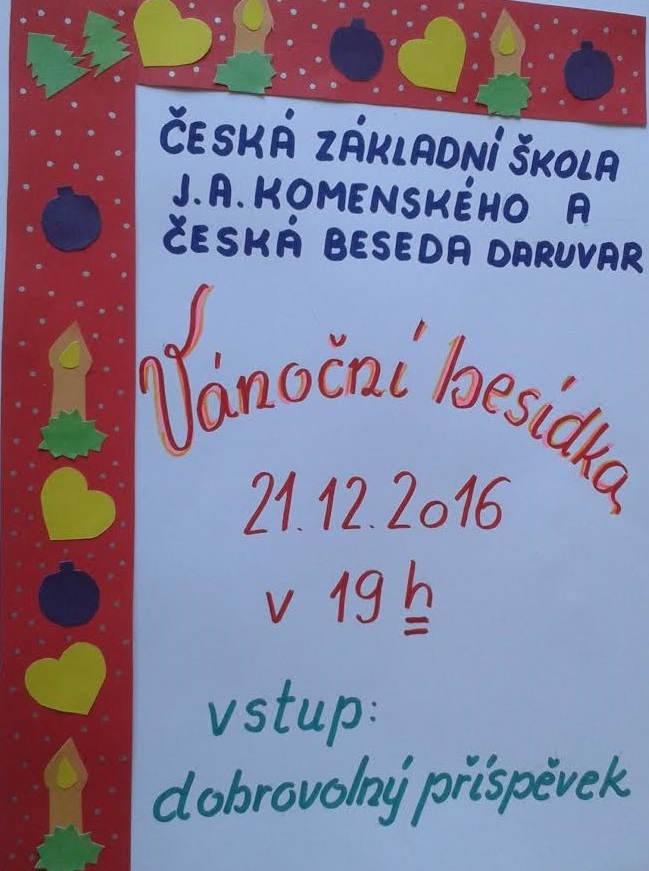 ČESKÁ ZÁKLADNÍ ŠKOLA
J.A. KOMENSKÉHO A
ČESKÁ BESEDA DARUVAR
Vánoční besídka
21.12.2016
v 19 h
vstup:
dobrovolný příspěvek